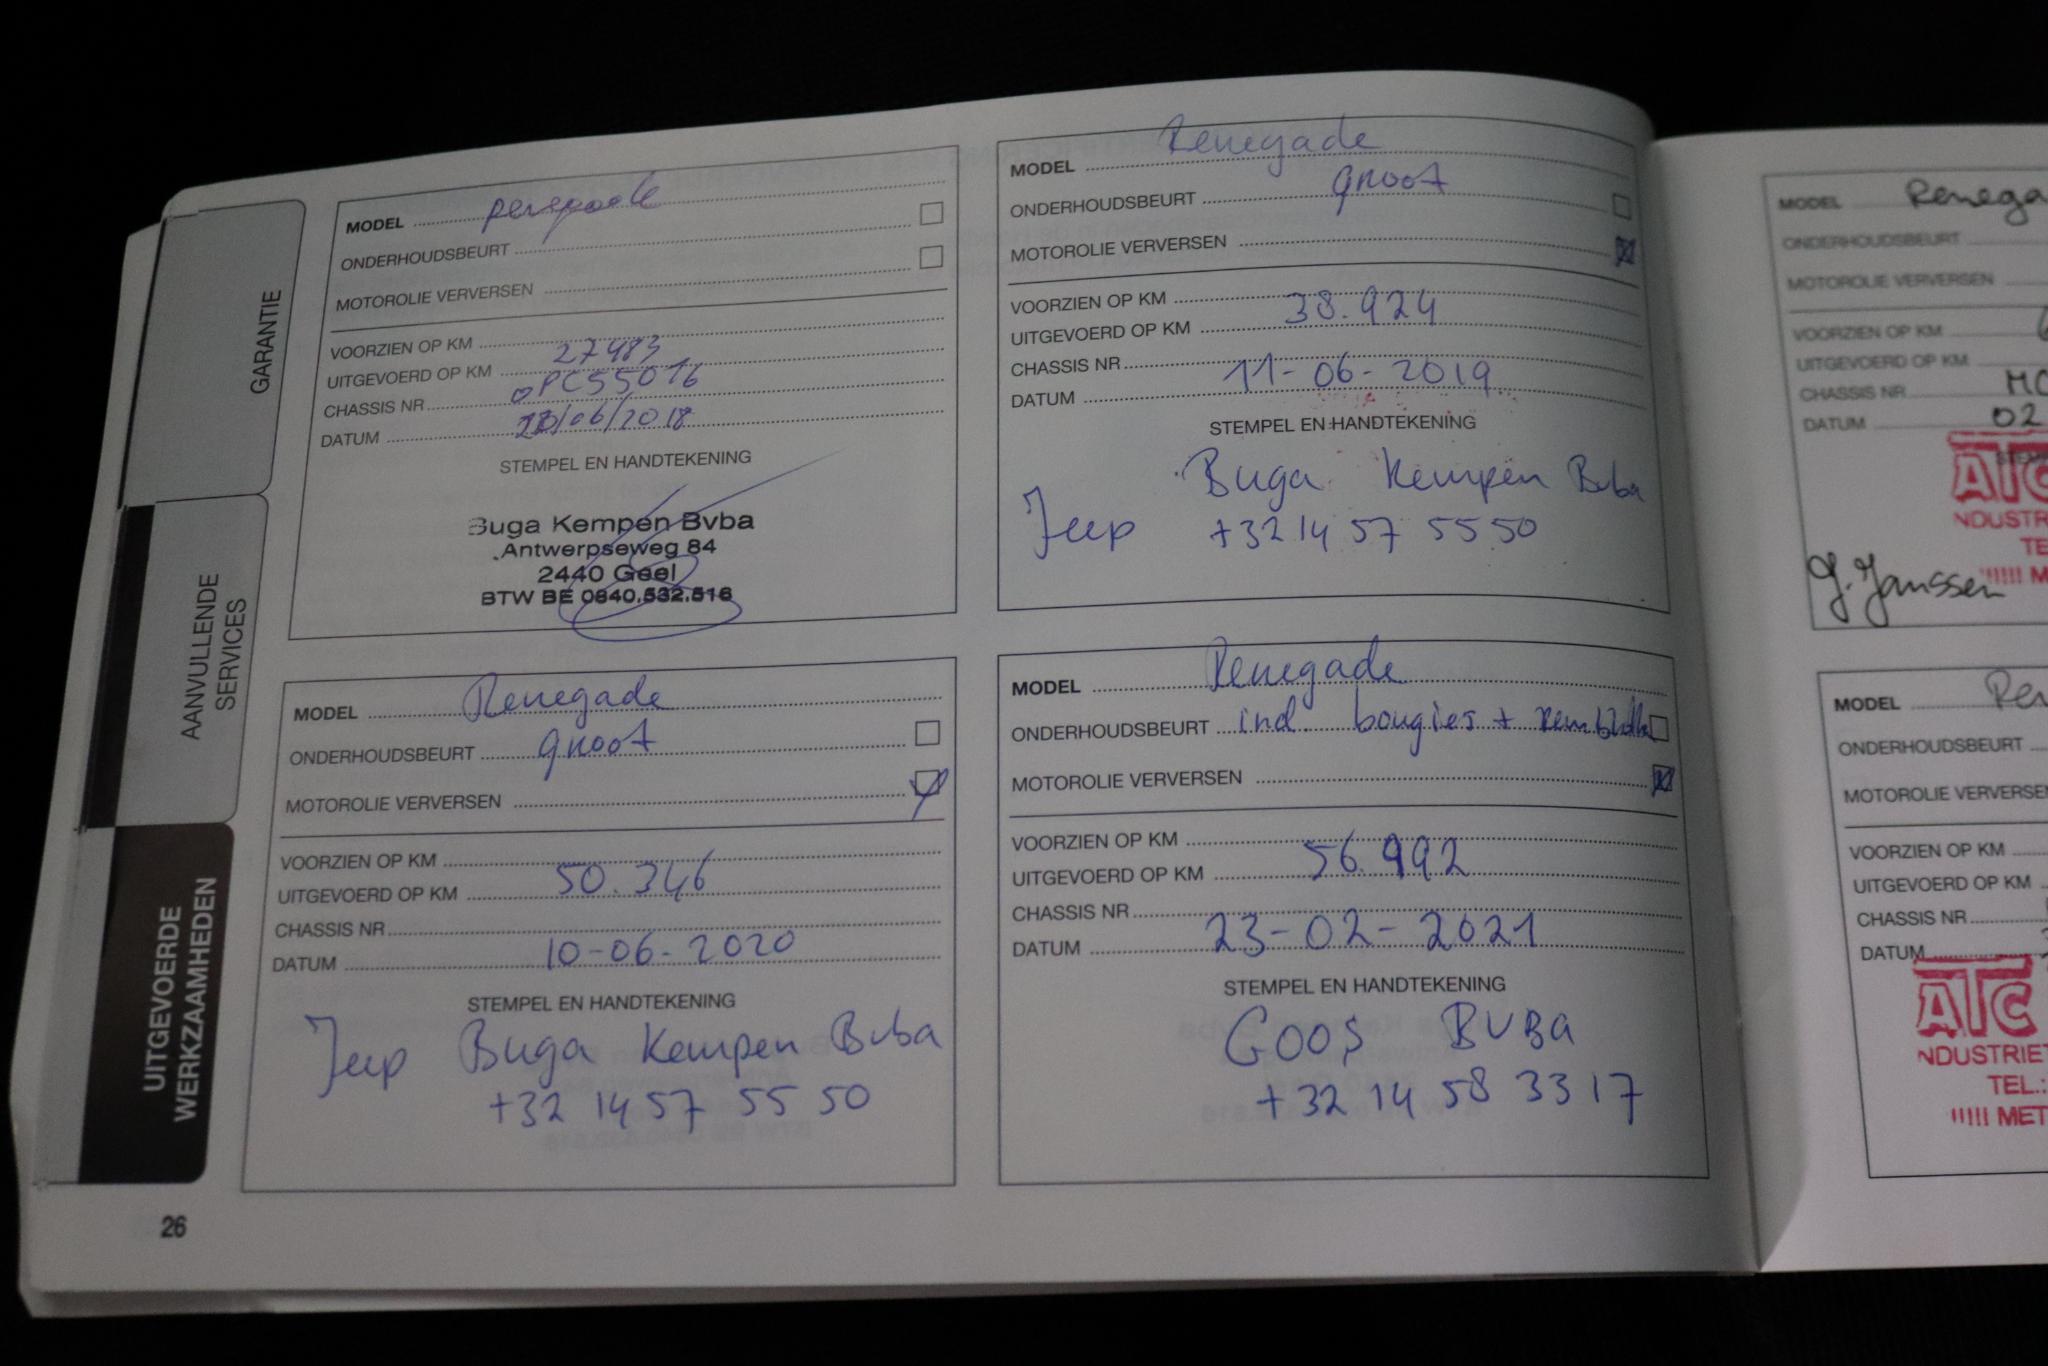 GARANTIE
AANVULLENDE
SERVICES
UITGEVOERDE
WERKZAAMHEDEN
MODEL Renegade
ONDERHOUDSBEURT
MOTOROLIE VERVERSEN
VOORZIEN OP KM
UITGEVOERD OP KM 27483
CHASSIS NR PC55016
DATUM /06/2018
STEMPEL EN HANDTEKENING
Buga Kempen Bvba
Antwerpseweg 84
2440 Geel
BTW BE 0840.532.516
MODEL Renegade
ONDERHOUDSBEURT groot
MOTOROLIE VERVERSEN
VOORZIEN OP KM
UITGEVOERD OP KM 38.924
CHASSIS NR
DATUM 11-06-2019
STEMPEL EN HANDTEKENING
Jeep Buga Kempen Bvba
+32 14 57 55 50
MODEL Renegade
ONDERHOUDSBEURT groot
MOTOROLIE VERVERSEN
VOORZIEN OP KM
UITGEVOERD OP KM 50.346
CHASSIS NR
DATUM 10-06-2020
STEMPEL EN HANDTEKENING
Jeep Buga Kempen Bvba
+32 14 57 55 50
MODEL Renegade
ONDERHOUDSBEURT incl. bougies +
MOTOROLIE VERVERSEN
VOORZIEN OP KM
UITGEVOERD OP KM 56.992
CHASSIS NR
DATUM 23-02-2021
STEMPEL EN HANDTEKENING
GOOS BVBA
+32 14 58 33 17
26
MODEL Renega
ONDERHOUDSBEURT
MOTOROLIE VERVERSEN
VOORZIEN OP KM 6
UITGEVOERD OP KM
CHASSIS NR MC
DATUM 02
ATC
NDUSTR
TE
!!!!! M
J. Janssen
MODEL Ren
ONDERHOUDSBEURT
MOTOROLIE VERVERSE
VOORZIEN OP KM
UITGEVOERD OP KM
CHASSIS NR
DATUM
ATC
NDUSTRIE
TEL.:
!!!!! MET